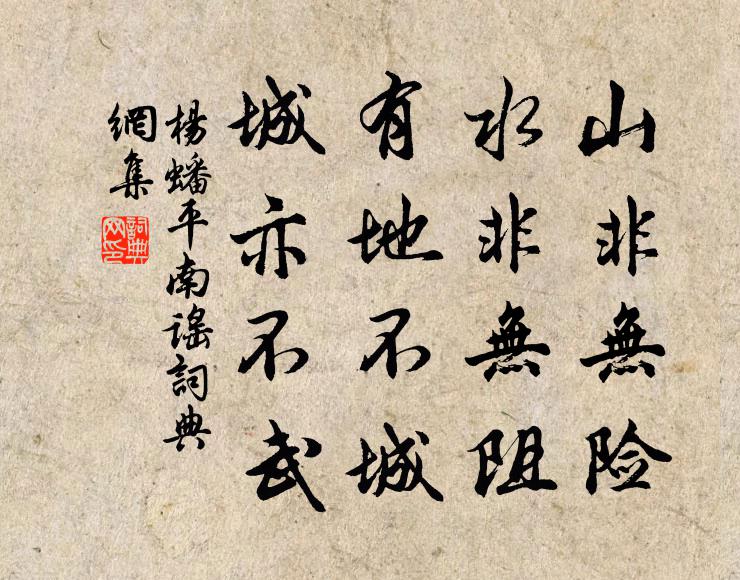 山非無险
水非無阻
有地不城
城亦不武
楊蟠平南謠詞典
網集
詞典
网印